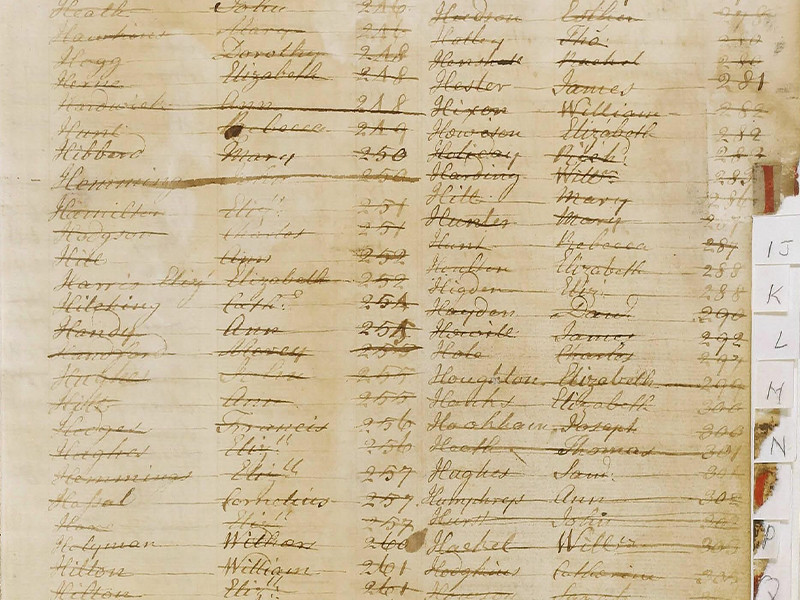 Heath John 246
Hawkins Mary 246
Hogg Dorothy 248
Horne Elizabeth 248
Hardwick Ann 248
Hunt Rebecca 249
Hibberd Mary 250
Hemming John 250
Hamilton Eliz 251
Hodgson Charles 251
Hill Ann 252
Harris Eliz Elizabeth 252
Hitching Cath 254
Handy Ann 254
Handford 255
Hughes John 255
Hill Ann 255
Hedges Francis 256
Hughes Eliz 256
Hemmings Eliz 257
Hassal Cornelius 257
Eliz 257
Holyman William 260
Hilton William 261
Hilton Eliz 261
Hudson Esther
Hatley Tho
Rachel
Hester James 281
Hixon William 282
Howeson Elizabeth 282
Holiday Rich 282
Harding Will
Hill Mary
Hunter Mary 287
Hunt Rebecca 287
Elizabeth 288
Higden Eliz 288
Haydon Dan 290
James 292
Hole Charles
Houghton Elizabeth
Hawks Elizabeth 300
Joseph 300
Heath Thomas 301
Hughes Sam 301
Humphrys Ann 302
Hurst John
Haskel Will
Hodgkins Catherine
I J
K
L
M
N
P
Q